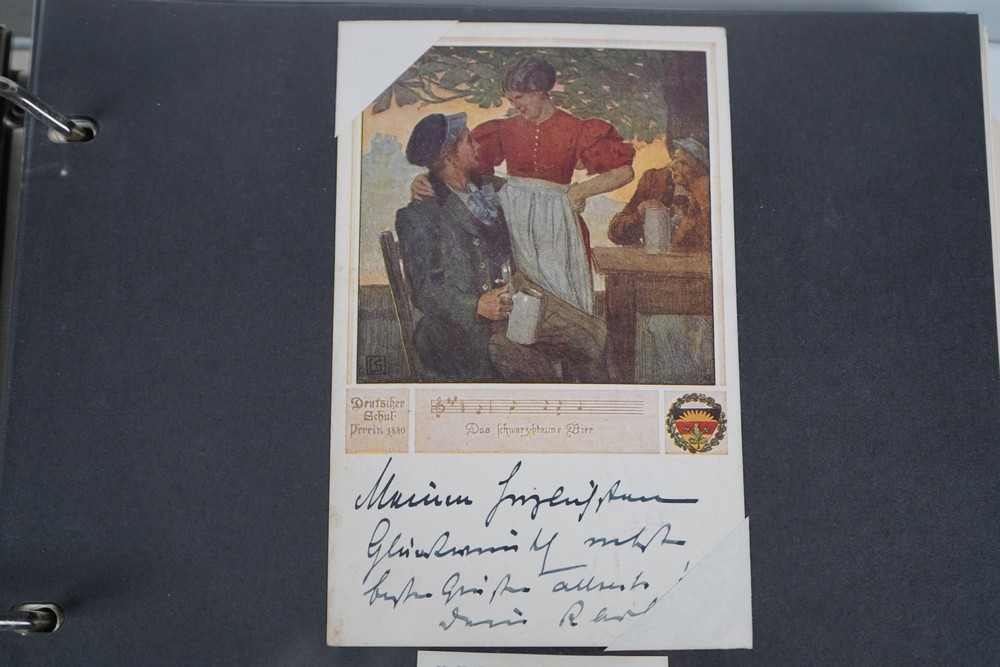 Deutscher
Schul-
Verein 1880
Das schwarzbraune Bier
Meinen herzlichsten
Glückwunsch nebst
beste Grüße allseits!
Dein Karl